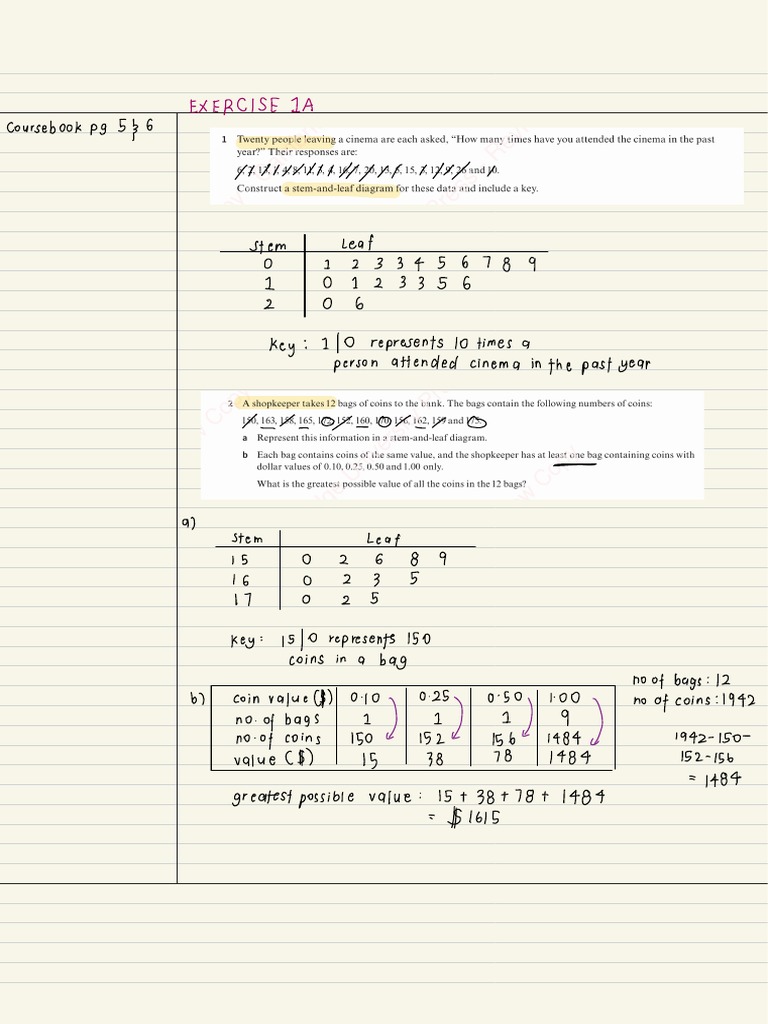 EXERCISE 1A
Coursebook pg 5 & 6
1 Twenty people leaving a cinema are each asked, “How many times have you attended the cinema in the past
year?” Their responses are:
15, and
Construct a stem-and-leaf diagram for these data and include a key.
Stem Leaf
0 1 2 3 3 4 5 6 7 8 9
1 0 1 2 3 3 5 6
2 0 6
Key : 1|0 represents 10 times a
person attended cinema in the past year
2 A shopkeeper takes 12 bags of coins to the bank. The bags contain the following numbers of coins:
150, 163, 158, 165, 172, 152, 160, 170, 156, 162, 159 and 175.
a Represent this information in a stem-and-leaf diagram.
b Each bag contains coins of the same value, and the shopkeeper has at least one bag containing coins with
dollar values of 0.10, 0.25, 0.50 and 1.00 only.
What is the greatest possible value of all the coins in the 12 bags?
a)
Stem Leaf
15 0 2 6 8 9
16 0 2 3 5
17 0 2 5
Key: 15|0 represents 150
coins in a bag
no of bags: 12
no of coins: 1942
b) coin value ($) 0.10 0.25 0.50 1.00
no. of bags 1 1 1 9
no. of coins 150 152 156 1484
value ($) 15 38 78 1484
1942-150-
152-156
= 1484
greatest possible value : 15 + 38 + 78 + 1484
= $1615